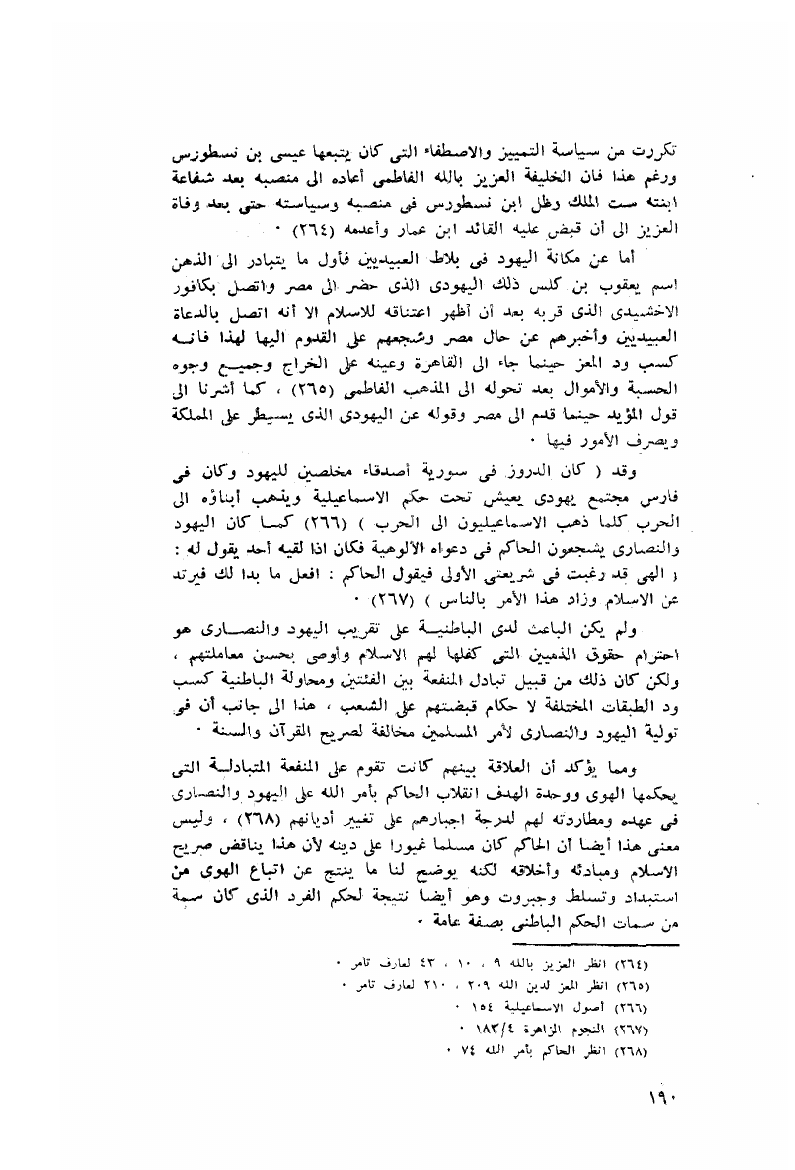 تكررت من سياسة التمييز والاصطفاء التى كان يتبعها عيسى بن نسطورس
ورغم هذا فان الخليفة العزيز بالله الفاطمى أعاده الى منصبه بعد شفاعة
ابنته ست الملك وظل ابن نسطورس فى منصبه وسياسته حتى بعد وفاة
العزيز الى أن قبض عليه القائد ابن عمار وأعدمه (٢٦٤) ٠
أما عن مكانة اليهود فى بلاط العبيديين فأول ما يتبادر الى الذهن
اسم يعقوب بن كلس ذلك اليهودى الذى حضر الى مصر واتصل بكافور
الاخشيدى الذى قربه بعد أن أظهر اعتناقه للاسلام الا أنه اتصل بالدعاة
العبيديين وأخبرهم عن حال مصر وشجعهم على القدوم اليها لهذا فانه
كسب ود المعز حينما جاء الى القاهرة وعينه على الخراج وجميع وجوه
الحسبة والأموال بعد تحوله الى المذهب الفاطمى (٢٦٥) ، كما أشرنا الى
قول المؤيد حينما قدم الى مصر وقوله عن اليهودى الذى يسيطر على المملكة
ويصرف الأمور فيها ٠
وقد ( كان الدروز فى سورية أصدقاء مخلصين لليهود وكان فى
فارس مجتمع يهودى يعيش تحت حكم الاسماعيلية ويذهب أبناؤه الى
الحرب كلما ذهب الاسماعيليون الى الحرب ) (٢٦٦) كما كان اليهود
والنصارى يشجعون الحاكم فى دعواه الألوهية فكان اذا لقيه أحد يقول له :
( الهى قد رغبت فى شريعتى الأولى فيقول الحاكم : افعل ما بدا لك فيرتد
عن الاسلام وزاد هذا الأمر بالناس ) (٢٦٧) ٠
ولم يكن الباعث لدى الباطنية على تقريب اليهود والنصارى هو
احترام حقوق الذميين التى كفلها لهم الاسلام وأوصى بحسن معاملتهم ،
ولكن كان ذلك من قبيل تبادل المنفعة بين الفئتين ومحاولة الباطنية كسب
ود الطبقات المختلفة لا حكام قبضتهم على الشعب ، هذا الى جانب أن فى
تولية اليهود والنصارى لأمر المسلمين مخالفة لصريح القرآن والسنة ٠
ومما يؤكد أن العلاقة بينهم كانت تقوم على المنفعة المتبادلة التى
يحكمها الهوى ووحدة الهدف انقلاب الحاكم بأمر الله على اليهود والنصارى
فى عهده ومطاردته لهم لدرجة اجبارهم على تغيير أديانهم (٢٦٨) ، وليس
معنى هذا أيضا أن الحاكم كان مسلما غيورا على دينه لأن هذا يناقض صريح
الاسلام ومبادئه وأخلاقه لكنه يوضح لنا ما ينتج عن اتباع الهوى من
استبداد وتسلط وجبروت وهو أيضا نتيجة لحكم الفرد الذى كان سمة
من سمات الحكم الباطنى بصفة عامة ٠
(٢٦٤) انظر العزيز بالله ٩ ، ١٠ ، ٤٣ لعارف تامر ٠
(٢٦٥) انظر المعز لدين الله ٢٠٩ ، ٢١٠ لعارف تامر ٠
(٢٦٦) أصول الاسماعيلية ١٥٤ ٠
(٢٦٧) النجوم الزاهرة ١٨٣/٤ ٠
(٢٦٨) انظر الحاكم بأمر الله ٧٤ ٠
١٩٠